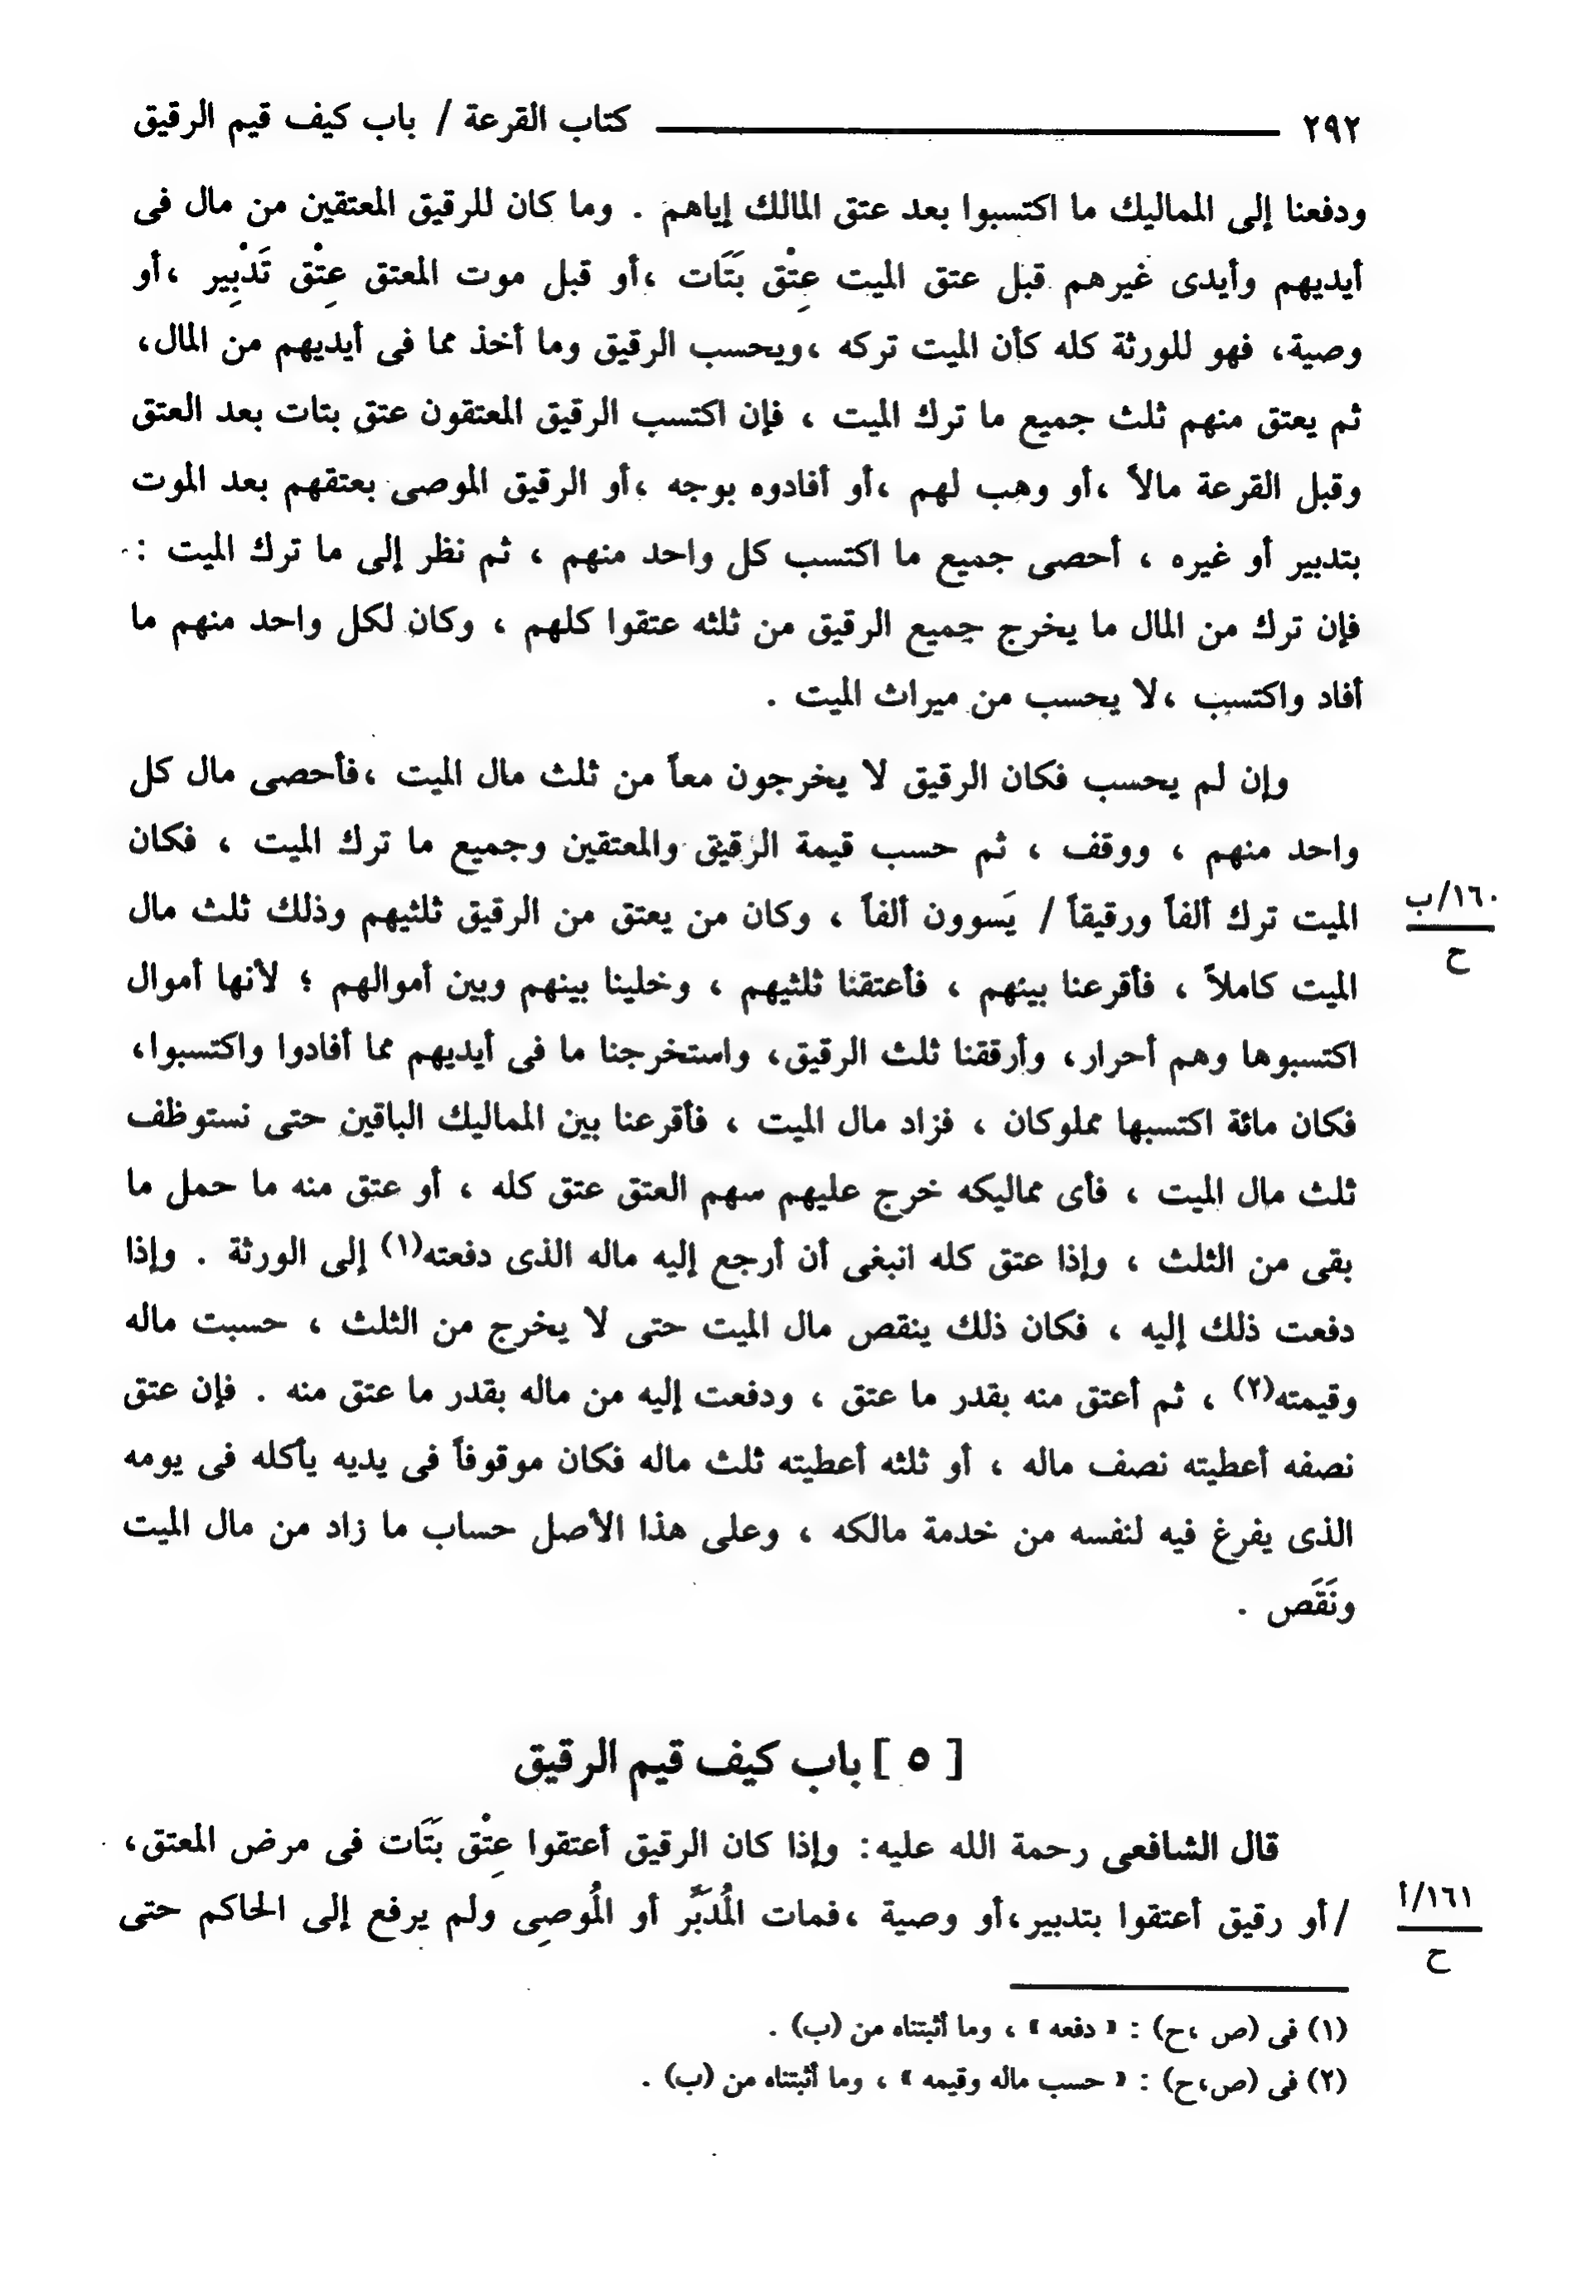 ٢٩٢ كتاب القرعة / باب كيف قيم الرقيق
ودفعنا إلى المماليك ما اكتسبوا بعد عتق المالك إياهم . وما كان للرقيق المعتقين من مال فى
أيديهم وأيدى غيرهم قبل عتق الميت عِتْق بَتَات ،أو قبل موت المعتق عِتْق تَدْبِير ،أو
وصية، فهو للورثة كله كأن الميت تركه ،ويحسب الرقيق وما أخذ مما فى أيديهم من المال،
ثم يعتق منهم ثلث جميع ما ترك الميت ، فإن اكتسب الرقيق المعتقون عتق بتات بعد العتق
وقبل القرعة مالاً ،أو وهب لهم ،أو أفادوه بوجه ،أو الرقيق الموصى بعتقهم بعد الموت
بتدبير أو غيره ، أحصى جميع ما اكتسب كل واحد منهم ، ثم نظر إلى ما ترك الميت :
فإن ترك من المال ما يخرج جميع الرقيق من ثلثه عتقوا كلهم ، وكان لكل واحد منهم ما
أفاد واكتسب ،لا يحسب من ميراث الميت .
وإن لم يحسب فكان الرقيق لا يخرجون معاً من ثلث مال الميت ،فأحصى مال كل
واحد منهم ، ووقف ، ثم حسب قيمة الرقيق والمعتقين وجميع ما ترك الميت ، فكان
الميت ترك ألفاً ورقيقاً / يَسوون ألفاً ، وكان من يعتق من الرقيق ثلثيهم وذلك ثلث مال
١٦٠/ب
ح
الميت كاملاً ، فأقرعنا بينهم ، فأعتقنا ثلثيهم ، وخلينا بينهم وبين أموالهم ؛ لأنها أموال
اكتسبوها وهم أحرار، وأرققنا ثلث الرقيق، واستخرجنا ما فى أيديهم مما أفادوا واكتسبوا،
فكان مائة اكتسبها مملوكان ، فزاد مال الميت ، فأقرعنا بين المماليك الباقين حتى نستوظف
ثلث مال الميت ، فأى مماليكه خرج عليهم سهم العتق عتق كله ، أو عتق منه ما حمل ما
بقى من الثلث ، وإذا عتق كله انبغى أن أرجع إليه ماله الذى دفعته(١) إلى الورثة . وإذا
دفعت ذلك إليه ، فكان ذلك ينقص مال الميت حتى لا يخرج من الثلث ، حسبت ماله
وقيمته(٢) ، ثم أعتق منه بقدر ما عتق ، ودفعت إليه من ماله بقدر ما عتق منه . فإن عتق
نصفه أعطيته نصف ماله ، أو ثلثه أعطيته ثلث ماله فكان موقوفاً فى يديه يأكله فى يومه
الذى يفرغ فيه لنفسه من خدمة مالكه ، وعلى هذا الأصل حساب ما زاد من مال الميت
ونَقَص .
[ ٥ ] باب كيف قيم الرقيق
قال الشافعى رحمة الله عليه: وإذا كان الرقيق أعتقوا عِتْق بَتَات فى مرض المعتق،
/ أو رقيق أعتقوا بتدبير،أو وصية ،فمات المُدَبِّر أو المُوصِى ولم يرفع إلى الحاكم حتى
١٦١/أ
ح
(١) فى (ص ،ح) : « دفعه » ، وما أثبتناه من (ب) .
(٢) فى (ص،ح) : « حسب ماله وقيمه » ، وما أثبتناه من (ب) .